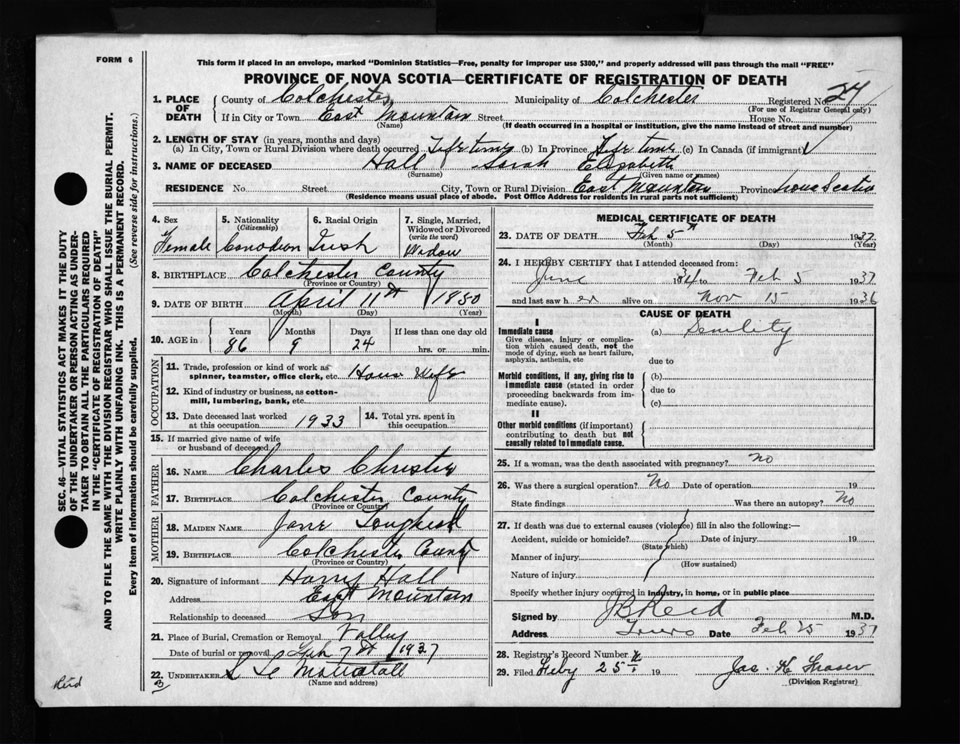 FORM 6
This form if placed in an envelope, marked "Dominion Statistics—Free, penalty for improper use $300," and properly addressed will pass through the mail "FREE"
PROVINCE OF NOVA SCOTIA—CERTIFICATE OF REGISTRATION OF DEATH
1. PLACE OF DEATH { County of Colchester Municipality of Colchester Registered No. 24
(For use of Registrar General only)
If in City or Town East Mountain Street House No.
(Name) (If death occurred in a hospital or institution, give the name instead of street and number)
2. LENGTH OF STAY (in years, months and days)
(a) In City, Town or Rural Division where death occurred Life time (b) In Province Life time (c) In Canada (if immigrant)
3. NAME OF DECEASED Hall Sarah Elizabeth
(Surname) (Given name or names)
RESIDENCE No. Street City, Town or Rural Division East Mountain Province Nova Scotia
(Residence means usual place of abode. Post Office Address for residents in rural parts not sufficient)
4. Sex Female
5. Nationality (Citizenship) Canadian
6. Racial Origin Irish
7. Single, Married, Widowed or Divorced (write the word) Widow
8. BIRTHPLACE Colchester County
(Province or County)
9. DATE OF BIRTH April 11th 1850
(Month) (Day) (Year)
10. AGE in { Years 86 Months 9 Days 24 If less than one day old hrs. or min.
OCCUPATION
11. Trade, profession or kind of work as spinner, teamster, office clerk, etc. House Wife
12. Kind of industry or business, as cotton-mill, lumbering, bank, etc.
13. Date deceased last worked at this occupation 1933
14. Total yrs. spent in this occupation
15. If married give name of wife or husband of deceased
FATHER
16. NAME Charles Christie
17. BIRTHPLACE Colchester County
(Province or County)
MOTHER
18. MAIDEN NAME Jane
19. BIRTHPLACE Colchester County
(Province or County)
20. Signature of informant Harry Hall
Address East Mountain
Relationship to deceased Son
21. Place of Burial, Cremation or Removal Valley
Date of burial or removal Feb 7th 1937
22. UNDERTAKER
(Name and address)
MEDICAL CERTIFICATE OF DEATH
23. DATE OF DEATH Feb 5th 1937
(Month) (Day) (Year)
24. I HEREBY CERTIFY that I attended deceased from:
June 1934 to Feb 5 1937
and last saw her alive on Nov 15 1936
CAUSE OF DEATH
I
Immediate cause
Give disease, injury or complication which caused death, not the mode of dying, such as heart failure, asphyxia, asthenia, etc
(a) Senility
due to
Morbid conditions, if any, giving rise to immediate cause (stated in order proceeding backwards from immediate cause).
(b)
due to
(c)
II
Other morbid conditions (if important) contributing to death but not causally related to immediate cause.
25. If a woman, was the death associated with pregnancy? no
26. Was there a surgical operation? No Date of operation 19
State findings Was there an autopsy? No
27. If death was due to external causes (violence) fill in also the following:—
Accident, suicide or homicide? Date of injury 19
(State which)
Manner of injury
(How sustained)
Nature of injury
Specify whether injury occurred in industry, in home, or in public place
Signed by J B Reid M.D.
Address Truro Date Feb 25 1937
28. Registrar's Record Number
29. Filed Feby 25th 19 Jas. H Fraser
(Division Registrar)
SEC. 46—VITAL STATISTICS ACT MAKES IT THE DUTY
OF THE UNDERTAKER OR PERSON ACTING AS UNDER-
TAKER TO OBTAIN ALL THE PARTICULARS REQUIRED
IN THE "CERTIFICATE OF REGISTRATION OF DEATH"
AND TO FILE THE SAME WITH THE DIVISION REGISTRAR WHO SHALL ISSUE THE BURIAL PERMIT.
WRITE PLAINLY WITH UNFADING INK. THIS IS A PERMANENT RECORD.
Every item of information should be carefully supplied. (See reverse side for instructions.)
Reid